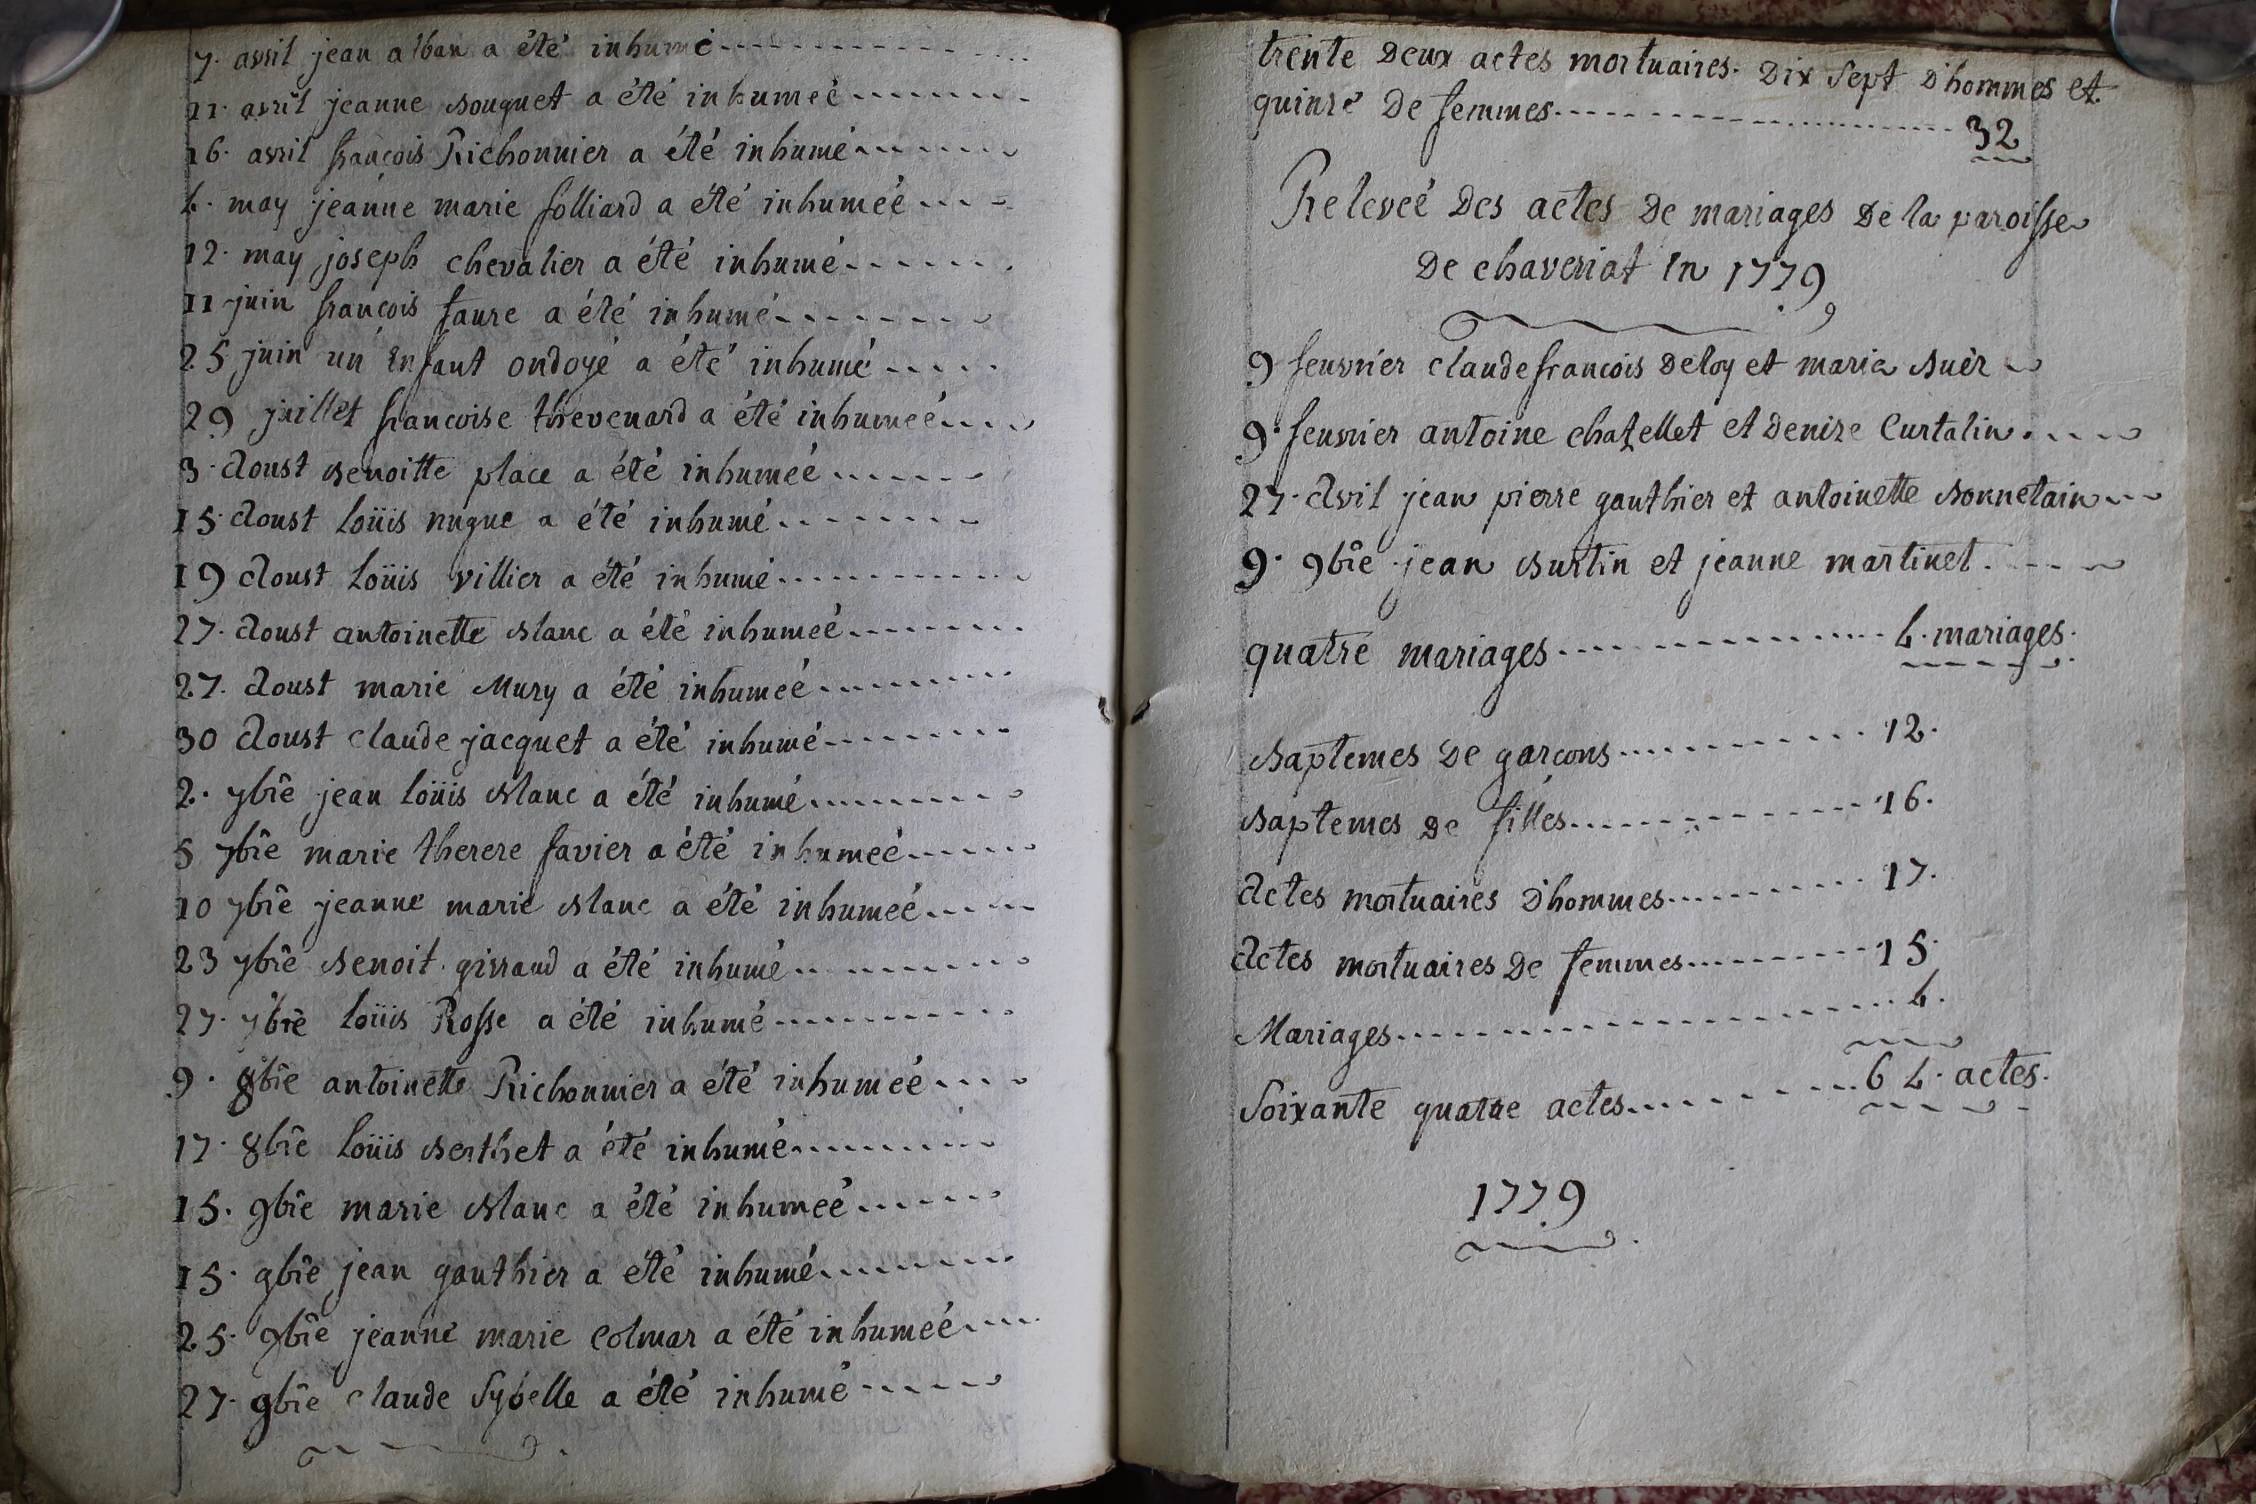 7. avril jean alban a été inhumé
11. avril jeanne Bouquet a été inhumeé
16. avril françois Richonnier a été inhumé
4. may jeanne marie folliard a été inhumeé
12. may joseph chevalier a été inhumé
11 juin françois faure a été inhumé
25 juin un Enfant ondoyé a été inhumé
29 juillet francoise thevenard a été inhumeé
3. Aoust Benoitte place a été inhumeé
15. Aoust Loüis nugue a été inhumé
19 Aoust Loüis villier a été inhumé
27. Aoust antoinette Blanc a été inhumeé
27. Aoust marie Mury a été inhumeé
30 Aoust claude jacquet a été inhumé
2. 7bre jean Loüis Blanc a été inhumé
5 7bre marie therere favier a été inhumeé
10 7bre jeanne marie Blanc a été inhumeé
23 7bre Benoit giraud a été inhumé
27. 7bre Loüis Rosse a été inhumé
9. 8bre antoinette Richonnier a été inhumeé
17. 8bre Loüis Berthet a été inhumé
15. 9bre marie Blanc a été inhumeé
15. 9bre jean gauthier a été inhumé
25. 9bre jeanne marie Colmar a été inhumeé
27. 9bre claude Sybelle a été inhumé
trente Deux actes mortuaires. Dix Sept D'hommes et
quinze De femmes 32
Releveé Des actes De mariages De la paroisse
De chaveriat En 1779
9 feuvrier claude francois Deloy et marie Buèr
9. feuvrier antoine chatellet et Denize Curtalin
27. Avil jean pierre gauthier et antoinette Bonnetain
9. 9bre jean Burtin et jeanne martinet
quatre mariages 4. mariages.
Baptemes De garçons 12.
Baptemes De filles 16.
Actes mortuaires D'hommes 17.
Actes mortuaires De femmes 15.
Mariages 4.
Soixante quatre actes 64. actes.
1779